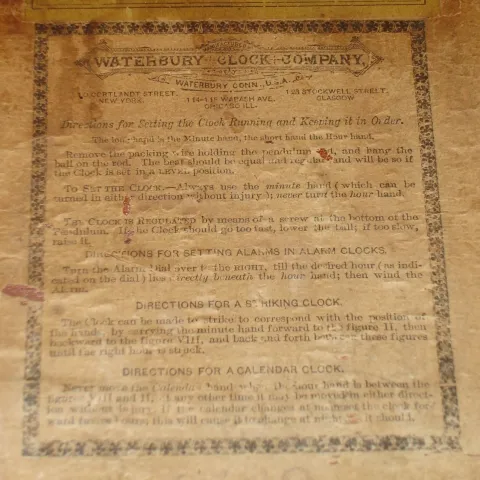 WATERBURY CLOCK COMPANY,
WATERBURY CONN., U.S.A.
CORTLANDT STREET,
NEW YORK.
WABASH AVE.
CHICAGO ILL.
STOCKWELL STREET,
GLASGOW
Directions for Setting the Clock Running and Keeping it in Order.
The long hand is the Minute hand, the short hand the Hour hand.
Remove the packing wire holding the pendulum rod, and hang the
ball on the rod. The beat should be equal and regular and will be so if
the Clock is set in a LEVEL position.
To SET THE CLOCK.—Always use the minute hand (which can be
turned in either direction without injury); never turn the hour hand.
THE CLOCK IS REGULATED by means of a screw at the bottom of the
Pendulum. If the Clock should go too fast, lower the ball; if too slow,
raise it.
DIRECTIONS FOR SETTING ALARMS IN ALARM CLOCKS.
Turn the Alarm Dial over to the RIGHT, till the desired hour (as indi-
cated on the dial) lies directly beneath the hour hand; then wind the
Alarm.
DIRECTIONS FOR A STRIKING CLOCK.
The Clock can be made to strike to correspond with the position of
the hands, by carrying the minute hand forward to the figure II, then
backward to the figure VIII, and back and forth between these figures
until the right hour is struck.
DIRECTIONS FOR A CALENDAR CLOCK.
Never move the Calendar hand when the hour hand is between the
figures VIII and II, at any other time it may be moved in either direct-
ion without injury. If the calendar changes at the clock for-
ward twelve hours; this will cause it to change at night as it should.